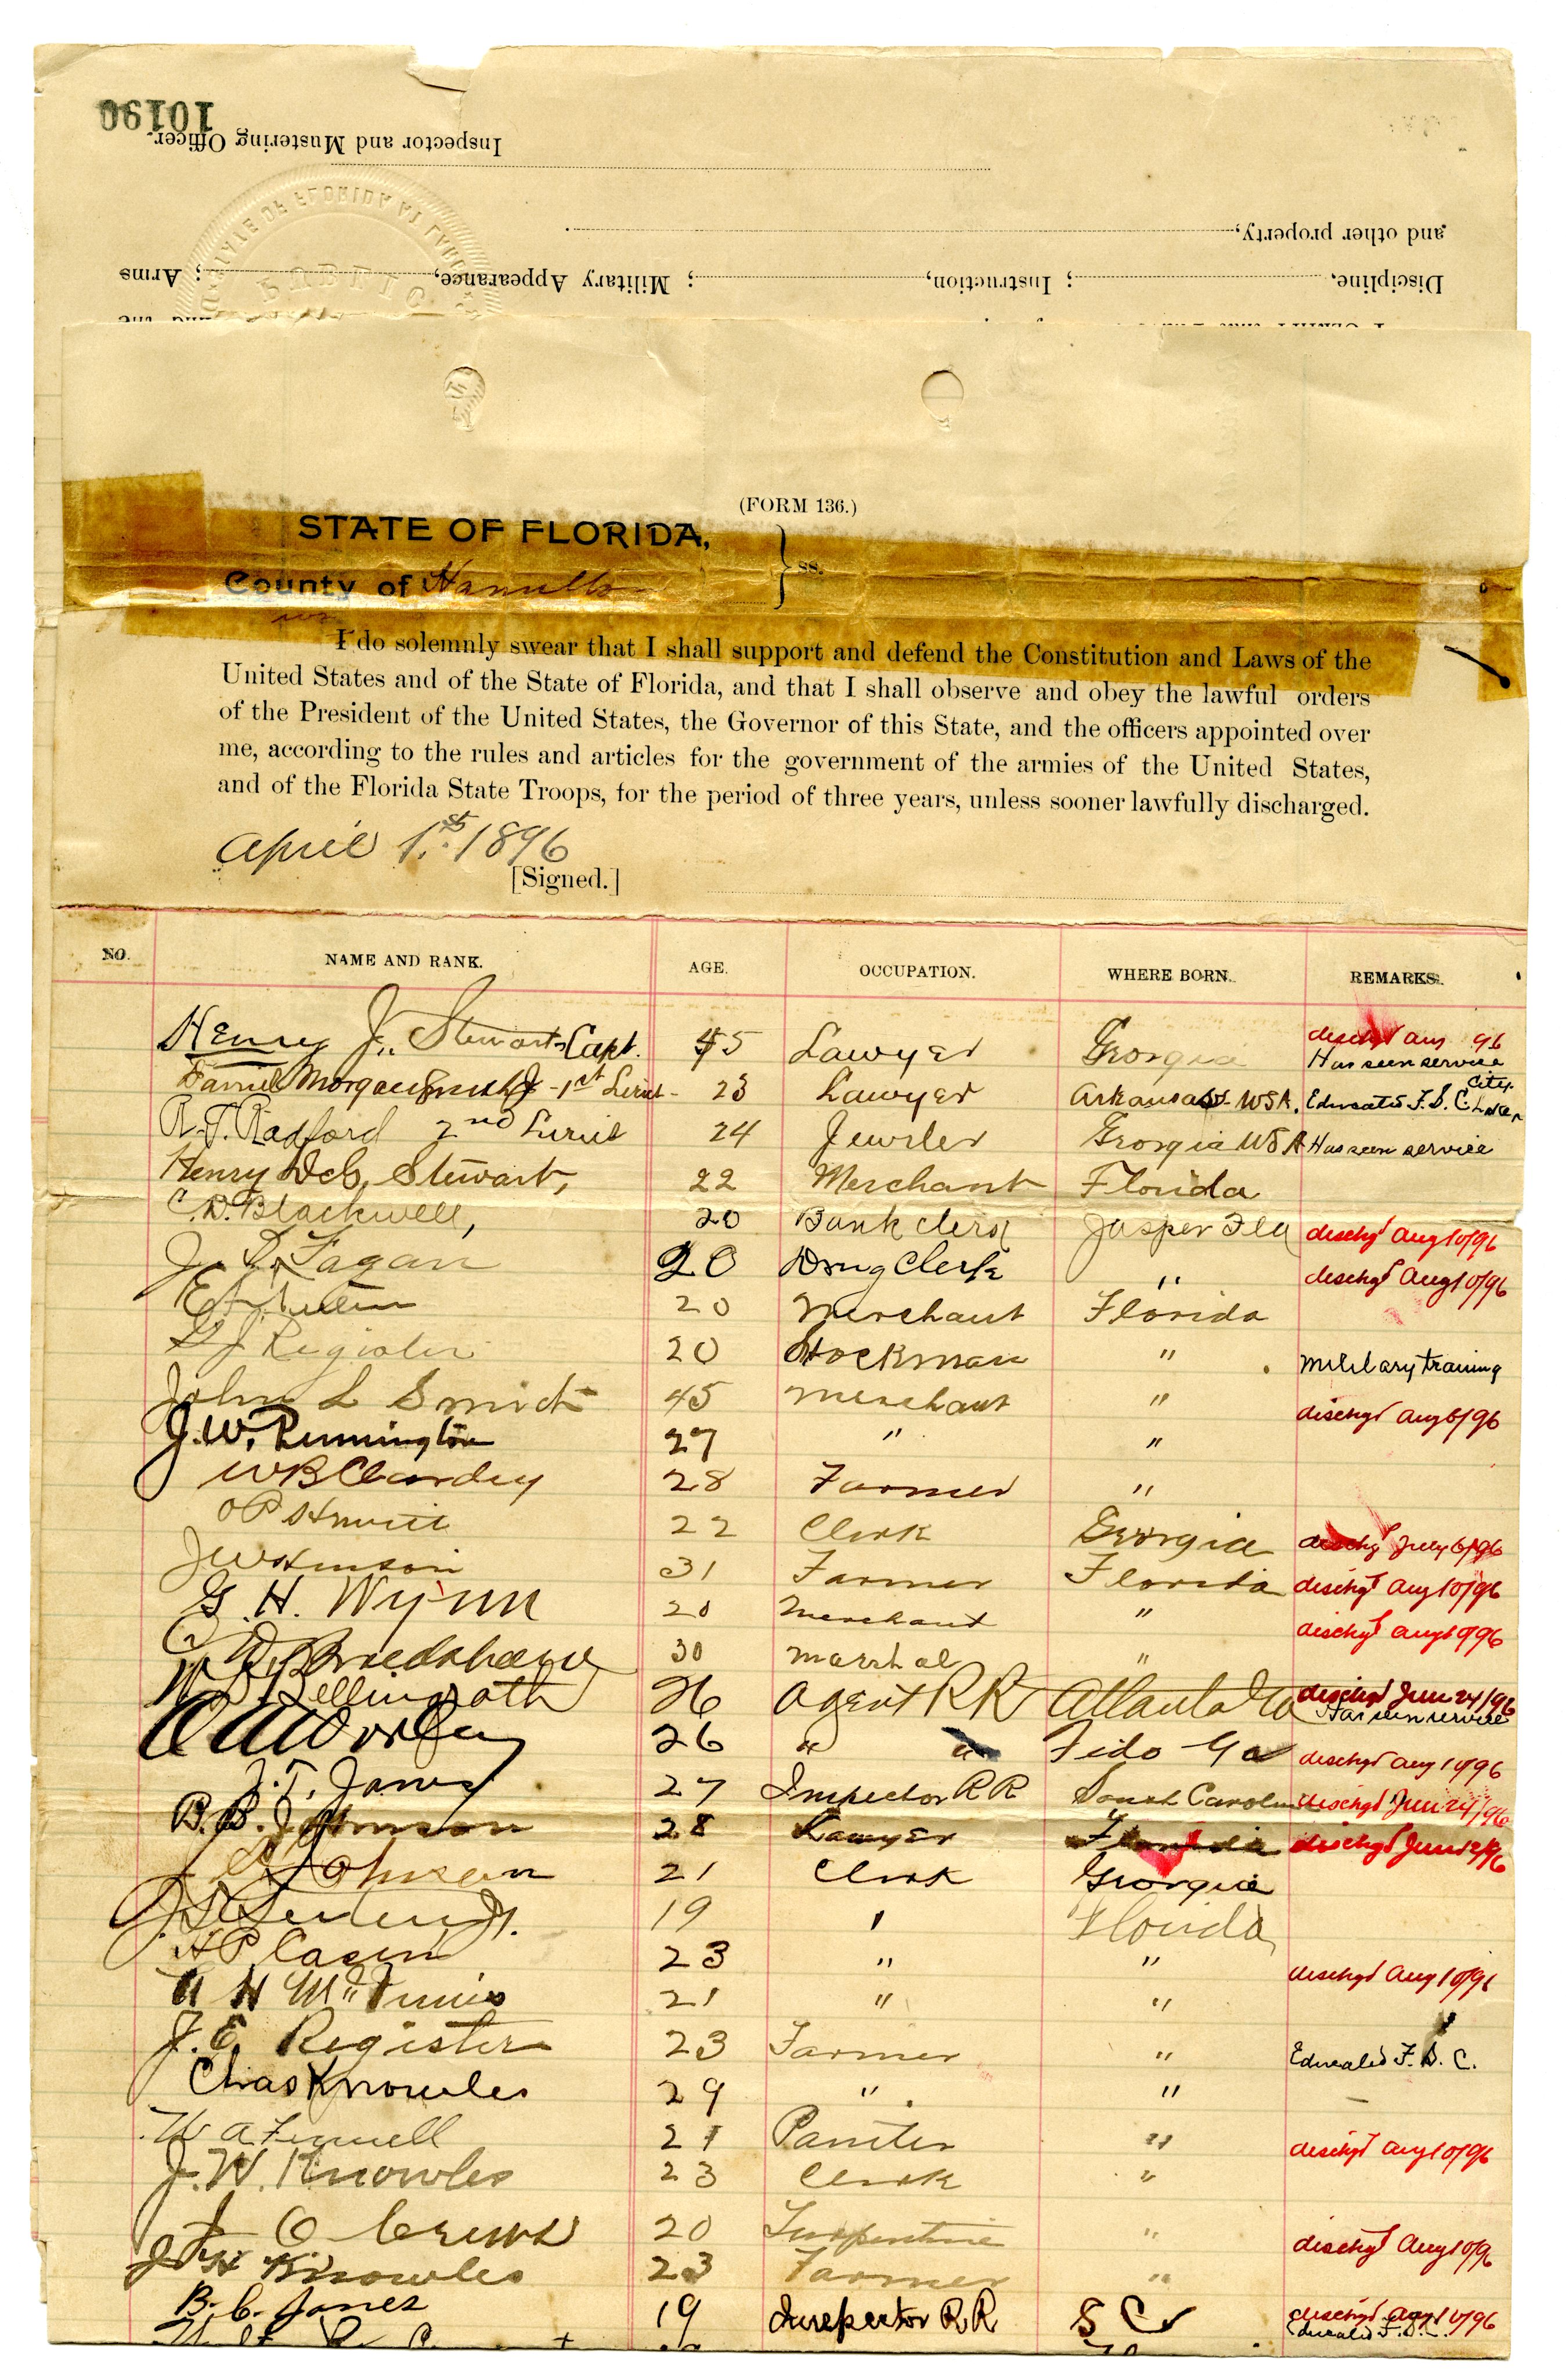 10190
Inspector and Mustering Officer.
and other property,
Discipline, ; Instruction, ; Military Appearance, ; Arms
and the
(FORM 136.)
STATE OF FLORIDA,
County of Hamilton } ss.
I do solemnly swear that I shall support and defend the Constitution and Laws of the
United States and of the State of Florida, and that I shall observe and obey the lawful orders
of the President of the United States, the Governor of this State, and the officers appointed over
me, according to the rules and articles for the government of the armies of the United States,
and of the Florida State Troops, for the period of three years, unless sooner lawfully discharged.
April 1st. 1896
[Signed.]
NO. NAME AND RANK. AGE. OCCUPATION. WHERE BORN. REMARKS.
Henry J. Stewart Capt. 45 Lawyer Georgia dischgd Aug 96
Has seen service
Daniel Morgan Smith Jr - 1st Lieut - 23 Lawyer Arkansas USA. Educated F. A. C. Lake City
R. T. Radford 2nd Lieut 24 Jeweler Georgia USA Has seen service
Henry DeC. Stewart, 22 Merchant Florida
C. D. Blackwell, 20 Bank Clerk Jasper Fla dischgd Aug 10/96
J. D. Fagan 20 Drug Clerk " dischgd Aug 10/96
20 Merchant Florida
G J Register 20 Stockman " military training
John L Smith 45 Merchant " dischgd Aug 6/96
J. W. Pennington 27 " "
W B Clardy 28 Farmer "
O P 22 Clerk Georgia dischgd July 6/96
J W Hinson 31 Farmer Florida dischgd Aug 10/96
G. H. Wynn 20 Merchant " dischgd Aug 10/96
Bradshaw 30 Marshal "
W D Bellingrath 26 Agent R R Atlanta Ga dischgd Jun 24/96
Has seen service
Worley 26 " " Fido Ga dischgd Aug 10/96
J. T. Jones 27 Inspector R R South Carolina dischgd Jun 24/96
B. B. Johnson 28 Lawyer Florida dischgd Jun 12/96
Johnson 21 Clerk Georgia
Jr. 19 " Florida
H P Cason 23 " " dischgd Aug 10/96
A H McInnis 21 " "
J. E. Register 23 Farmer " Educated F. A. C.
Chas Knowles 29 " "
W A Fennell 21 Painter " dischgd Aug 10/96
J. W. Knowles 23 Clerk "
J C Crews 20 Turpentine " dischgd Aug 10/96
J H Knowles 23 Farmer "
B. C. Jones 19 Inspector R R S C dischgd Aug 10/96
Educated F. A. C.